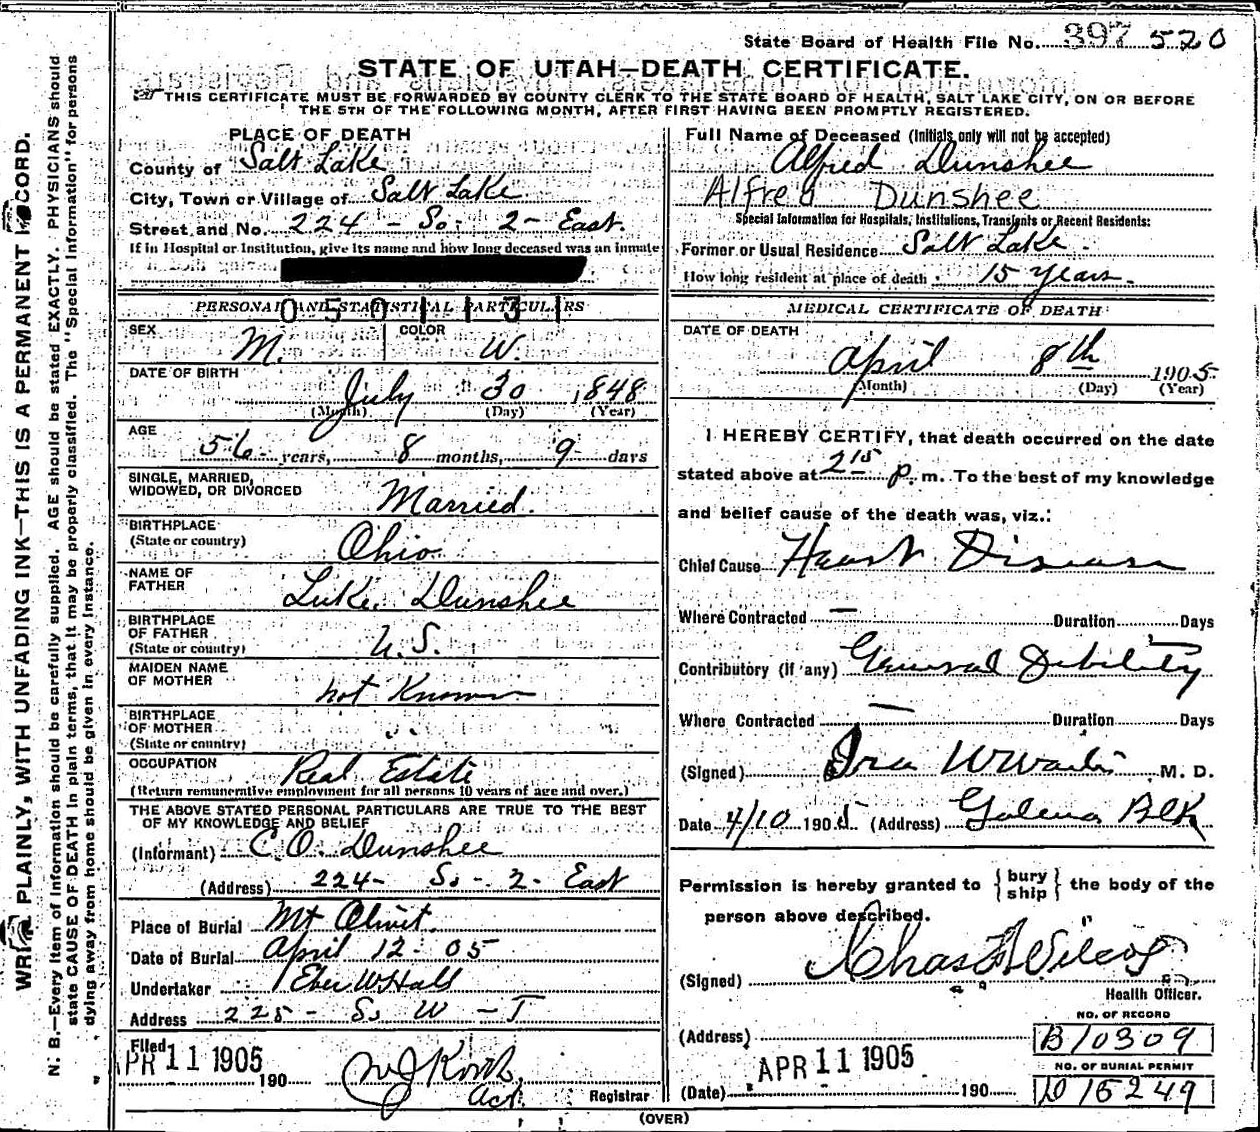 State Board of Health File No. 397 520
STATE OF UTAH—DEATH CERTIFICATE.
THIS CERTIFICATE MUST BE FORWARDED BY COUNTY CLERK TO THE STATE BOARD OF HEALTH, SALT LAKE CITY, ON OR BEFORE
THE 5TH OF THE FOLLOWING MONTH, AFTER FIRST HAVING BEEN PROMPTLY REGISTERED.
PLACE OF DEATH
County of Salt Lake
City, Town or Village of Salt Lake
Street and No. 224 - So. 2 - East.
If in Hospital or Institution, give its name and how long deceased was an inmate
PERSONAL AND STATISTICAL PARTICULARS
0 5 0 1 1 3 1
SEX M. COLOR W.
DATE OF BIRTH
July 30 1848
(Month) (Day) (Year)
AGE
56 years, 8 months, 9 days
SINGLE, MARRIED,
WIDOWED, OR DIVORCED Married.
BIRTHPLACE
(State or country) Ohio
NAME OF
FATHER Luke Dunshee
BIRTHPLACE
OF FATHER
(State or country) U.S.
MAIDEN NAME
OF MOTHER not Known
BIRTHPLACE
OF MOTHER
(State or country)
OCCUPATION Real Estate
(Return remunerative employment for all persons 10 years of age and over.)
THE ABOVE STATED PERSONAL PARTICULARS ARE TRUE TO THE BEST
OF MY KNOWLEDGE AND BELIEF
(Informant) C. O. Dunshee
(Address) 224 - So - 2 - East
Place of Burial Mt Olivit.
Date of Burial April 12 - 05
Undertaker Eber W Hall
Address 225 - S. W - T
Filed
APR 11 1905 190
Act. Registrar
Full Name of Deceased (Initials only will not be accepted)
Alfred Dunshee
Alfred Dunshee
Special Information for Hospitals, Institutions, Transients or Recent Residents:
Former or Usual Residence Salt Lake.
How long resident at place of death 15 years.
MEDICAL CERTIFICATE OF DEATH
DATE OF DEATH
April 8th 1905
(Month) (Day) (Year)
I HEREBY CERTIFY, that death occurred on the date
stated above at 2 15 p. m. To the best of my knowledge
and belief cause of the death was, viz.:
Chief Cause Heart Disease
Where Contracted — Duration Days
Contributory (if any) General Debility
Where Contracted — Duration Days
(Signed) M. D.
Date 4/10 1905 (Address) Galena Blk
Permission is hereby granted to { bury
ship } the body of the
person above described.
(Signed) Chas Wilcox
Health Officer.
(Address)
NO. OF RECORD
B10309
NO. OF BURIAL PERMIT
D15249
APR 11 1905
(Date) 190
(OVER)
WRITE PLAINLY, WITH UNFADING INK—THIS IS A PERMANENT RECORD.
N. B.—Every item of information should be carefully supplied. AGE should be stated EXACTLY. PHYSICIANS should
state CAUSE OF DEATH in plain terms, that it may be properly classified. The "Special Information" for persons
dying away from home should be given in every instance.